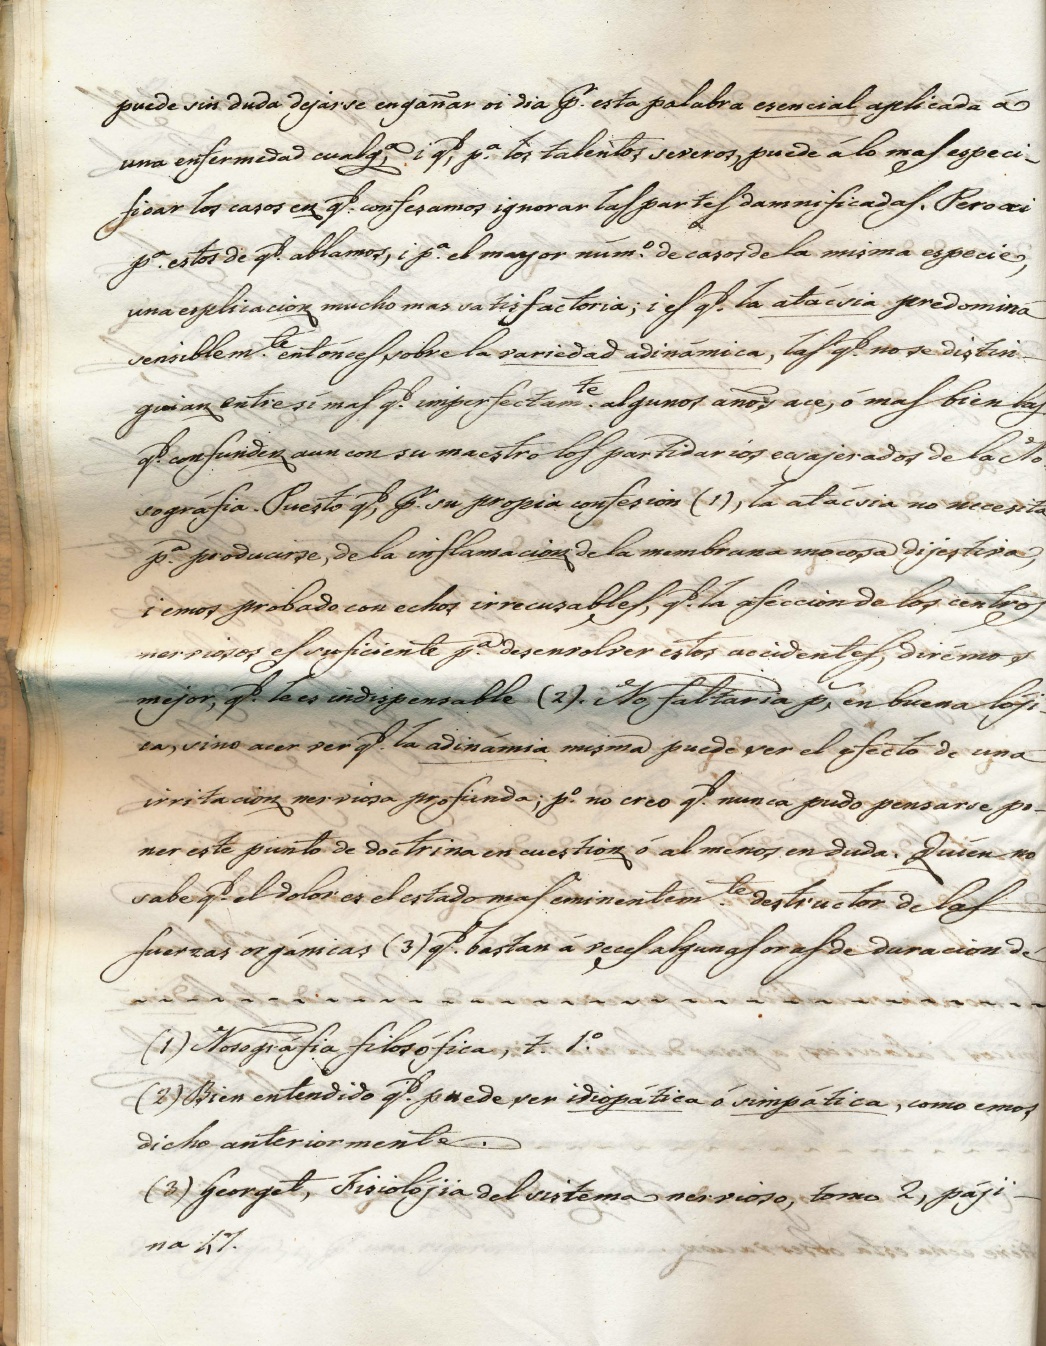 puede sin duda dejarse engañar oi dia pr. esta palabra esencial aplicada á
una enfermedad cualqa. i qe, pa. los talentos severos, puede á lo mas especi-
ficar los casos en qe. confesamos ignorar las partes damnificadas. Pero ai
pa. estos de qe. ablamos, i pa. el mayor núm.o de casos de la misma especie,
una esplicacion mucho mas satisfactoria; i es qe. la atácsia predomina
sensiblem.te entónces sobre la variedad adinámica, las qe. no se distin-
guian entre sí mas qe. imperfectam.te algunos años ace, ó mas bien las
qe. confunden aun con su maestro los partidarios ecsajerados de la No-
sográfia. Puesto qe, pr. su propia confesion (1), la atácsia no necesita
pa. producirse, de la inflamacion de la membrana mocosa dijestiva,
i emos probado con echos irrecusables, qe. la afeccion de los centros
nerviosos es suficiente pa. desenvolver estos accidentes, dirémos
mejor, qe. le es indispensable (2). No faltaria ps, en buena lóji-
ca, sino acer ver qe. la adinámia misma puede ser el efecto de una
irritacion nerviosa profunda; po. no creo qe. nunca pudo pensarse po-
ner este punto de doctrina en cuestion ó al ménos en duda. Quién no
sabe qe. el dolor es el estado mas eminentem.te destructor de las
fuerzas orgánicas (3) qe. bastan á veces algunas oras de duracion de
(1) Nosográfia filosófica, t. 1.o
(2) Bien entendido qe. puede ser idiopática ó simpática, como emos
dicho anteriormente.
(3) Georget, Fisiolójia del sistema nervioso, tomo 2, páji-
na